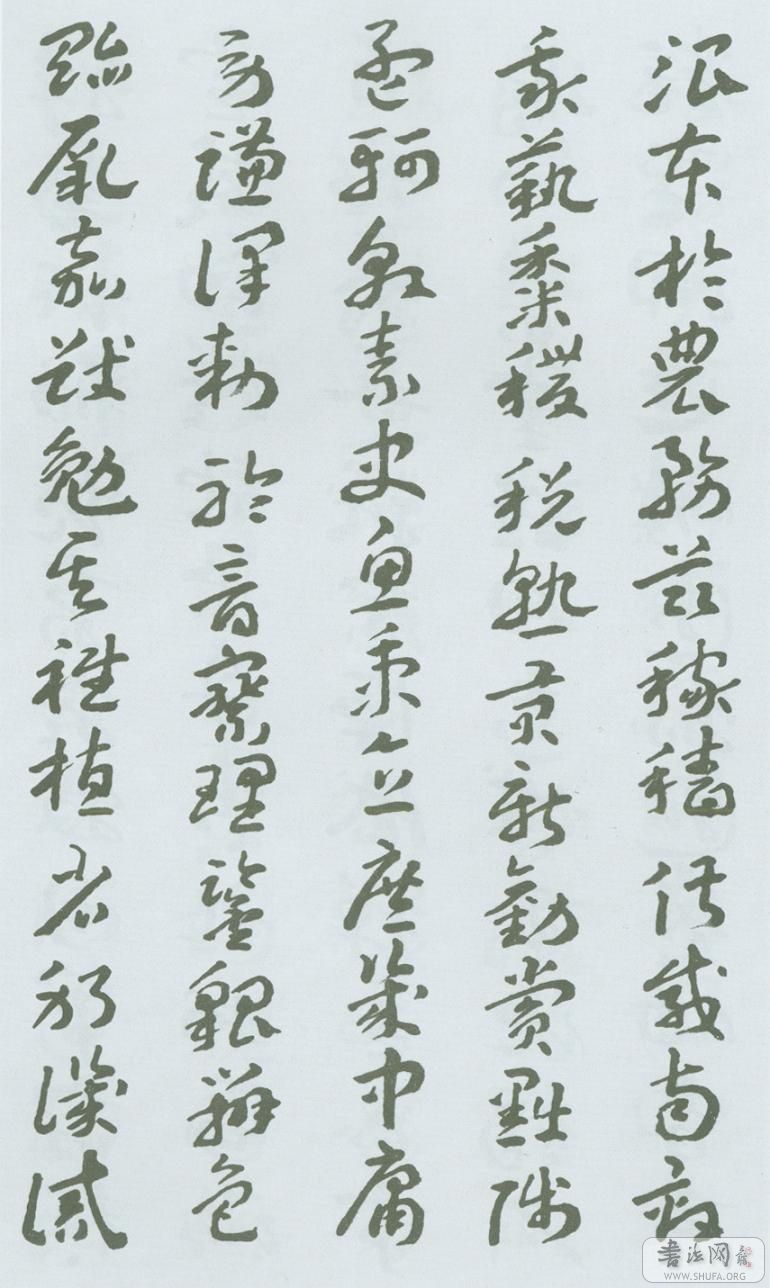 治本於農務茲稼穡俶載南畝
我藝黍稷稅熟貢新勸賞黜陟
孟軻敦素史魚秉直庶幾中庸
勞謙謹敕聆音察理鑒貌辨色
貽厥嘉猷勉其祗植省躬譏誡
書法网
WWW.SHUFA.ORG